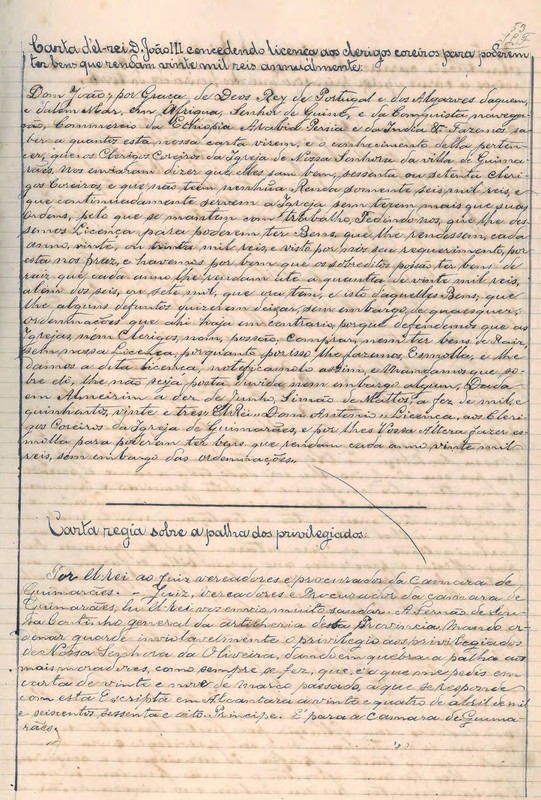 Carta d'el-rei D. João III concedendo licença aos clerigos coreiros para poderem
ter bens que rendam vinte mil reis annualmente:
Dom João, por Graça de Deos Rey de Portugal e dos Algarves daquem,
e dalem Mar, em Africa, Senhor de Guiné, e da Conquista, navega-
ção, Commercio da Ethiopia Arabia Persia e da India & Fazemos sa-
ber a quantos esta nossa carta virem, e o conhecimento della perten-
cer, que os Clerigos Coreiros da Igreja de Nossa Senhora da villa de Guima-
rães, Nos enviaram dizer que elles sam bem, sessenta ou setenta Cleri-
gos Coreiros, e que não tem nenhũa Renda somente seis mil reis, e
que continuadamente servem a Igreja sem terem mais que suas
Ordens, pelo que se mantem com tribalho, Pedindo-nos, que lhe des-
semos Licença, para poderem ter Bens, que lhe rendessem, cada
anno, vinte, ou trinta mil reis, e visto por nós seu requerimento, por
esta nos praz, e havemos por bem que os sobreditos possão ter bens de
raiz que cada anno lhe rendam até a quantia de vinte mil reis,
alem dos seis, ou sete mil, que ora tem, e isto daquelles Bens, que
lhe alguns defuntos quizerem deixar, sem embargo, de quaesquer,
ordenações que ahi haja em contrario, porque defendemos que as
Igrejas, nem Clerigos, nom, possão, Comprar, nem ter bens de Raiz,
sem, nossa Licença, porquanto por isso lhe fazemos, Esmolla, e lhe
Damos a dita licença, notificamolo assim, e Mandamos que, so-
bre elo, lhe não seja posta duvida nem embargo algum, Dada
em Almeirim a des de Junho, Simão de Mattos a fez de mil e
quinhentos, vinte e tres El-Rei Dom Antonio Licença, aos Cleri-
gos Coreiros da Igreja de Guimarães, e por lhes Vossa Alteza fazer es-
molla para poderem ter bens que rendam cada anno vinte mil
reis, sem embargo das ordennações.
Carta regia sobre a palha dos privilegiados:
Por El-rei ao Juiz vereadores e procurador da Camara de
Guimarães. Juiz, Vereadores e Procurador da çamara de
Guimarães, Eu El-Rei vos envio muito saudar. A Simão de
Coutinho general da artelheria desta Provincia, Mando or-
denar guarde inviolavelmente o privilegio aos privilegiados
de Nossa Senhora da Oliveira, dando em quebra a palha aos
mais moradores, como sempre se fez, que, é o que me pedis em
carta de vinte e nove de Março passado, a que se responde
com esta Escripta em Alcantara a vinte e quatro de abril de mil
e seiscentos, sessenta e oito. Principe. E para a Camara de Guima-
rães.